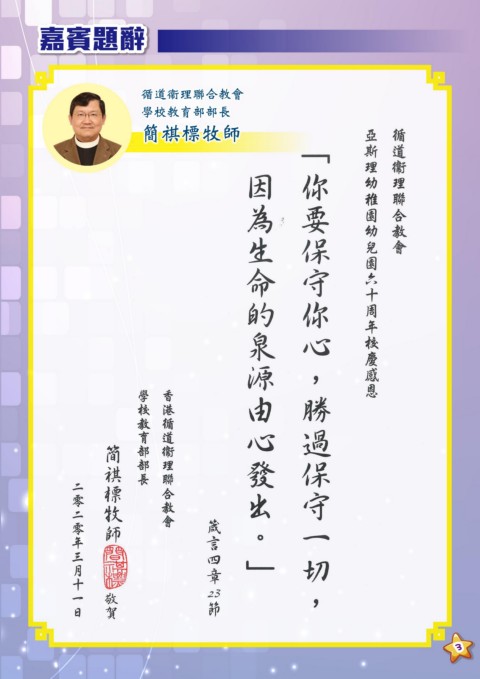 嘉賓題辭
循道衛理聯合教會
學校教育部部長
簡祺標牧師
循道衞理聯合教會
亞斯理幼稚園幼兒園六十周年校慶感恩
「你要保守你心，勝過保守一切，
因為生命的泉源由心發出。」
箴言四章23節
香港循道衞理聯合教會
學校教育部部長
簡祺標牧師 敬賀
二零二零年三月十一日
3